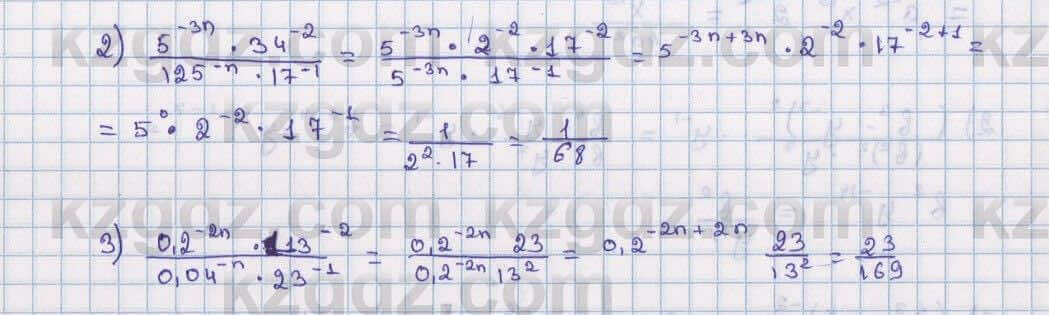 2) (5^-3n · 34^-2)/(125^-n · 17^-1) = (5^-3n · 2^-2 · 17^-2)/(5^-3n · 17^-1) = 5^-3n+3n · 2^-2 · 17^-2+1 =
= 5^0 · 2^-2 · 17^-1 = 1/(2^2 · 17) = 1/68
3) (0,2^-2n · 13^-2)/(0,04^-n · 23^-1) = (0,2^-2n 23)/(0,2^-2n 13^2) = 0,2^-2n+2n 23/13^2 = 23/169
kzgdz.com